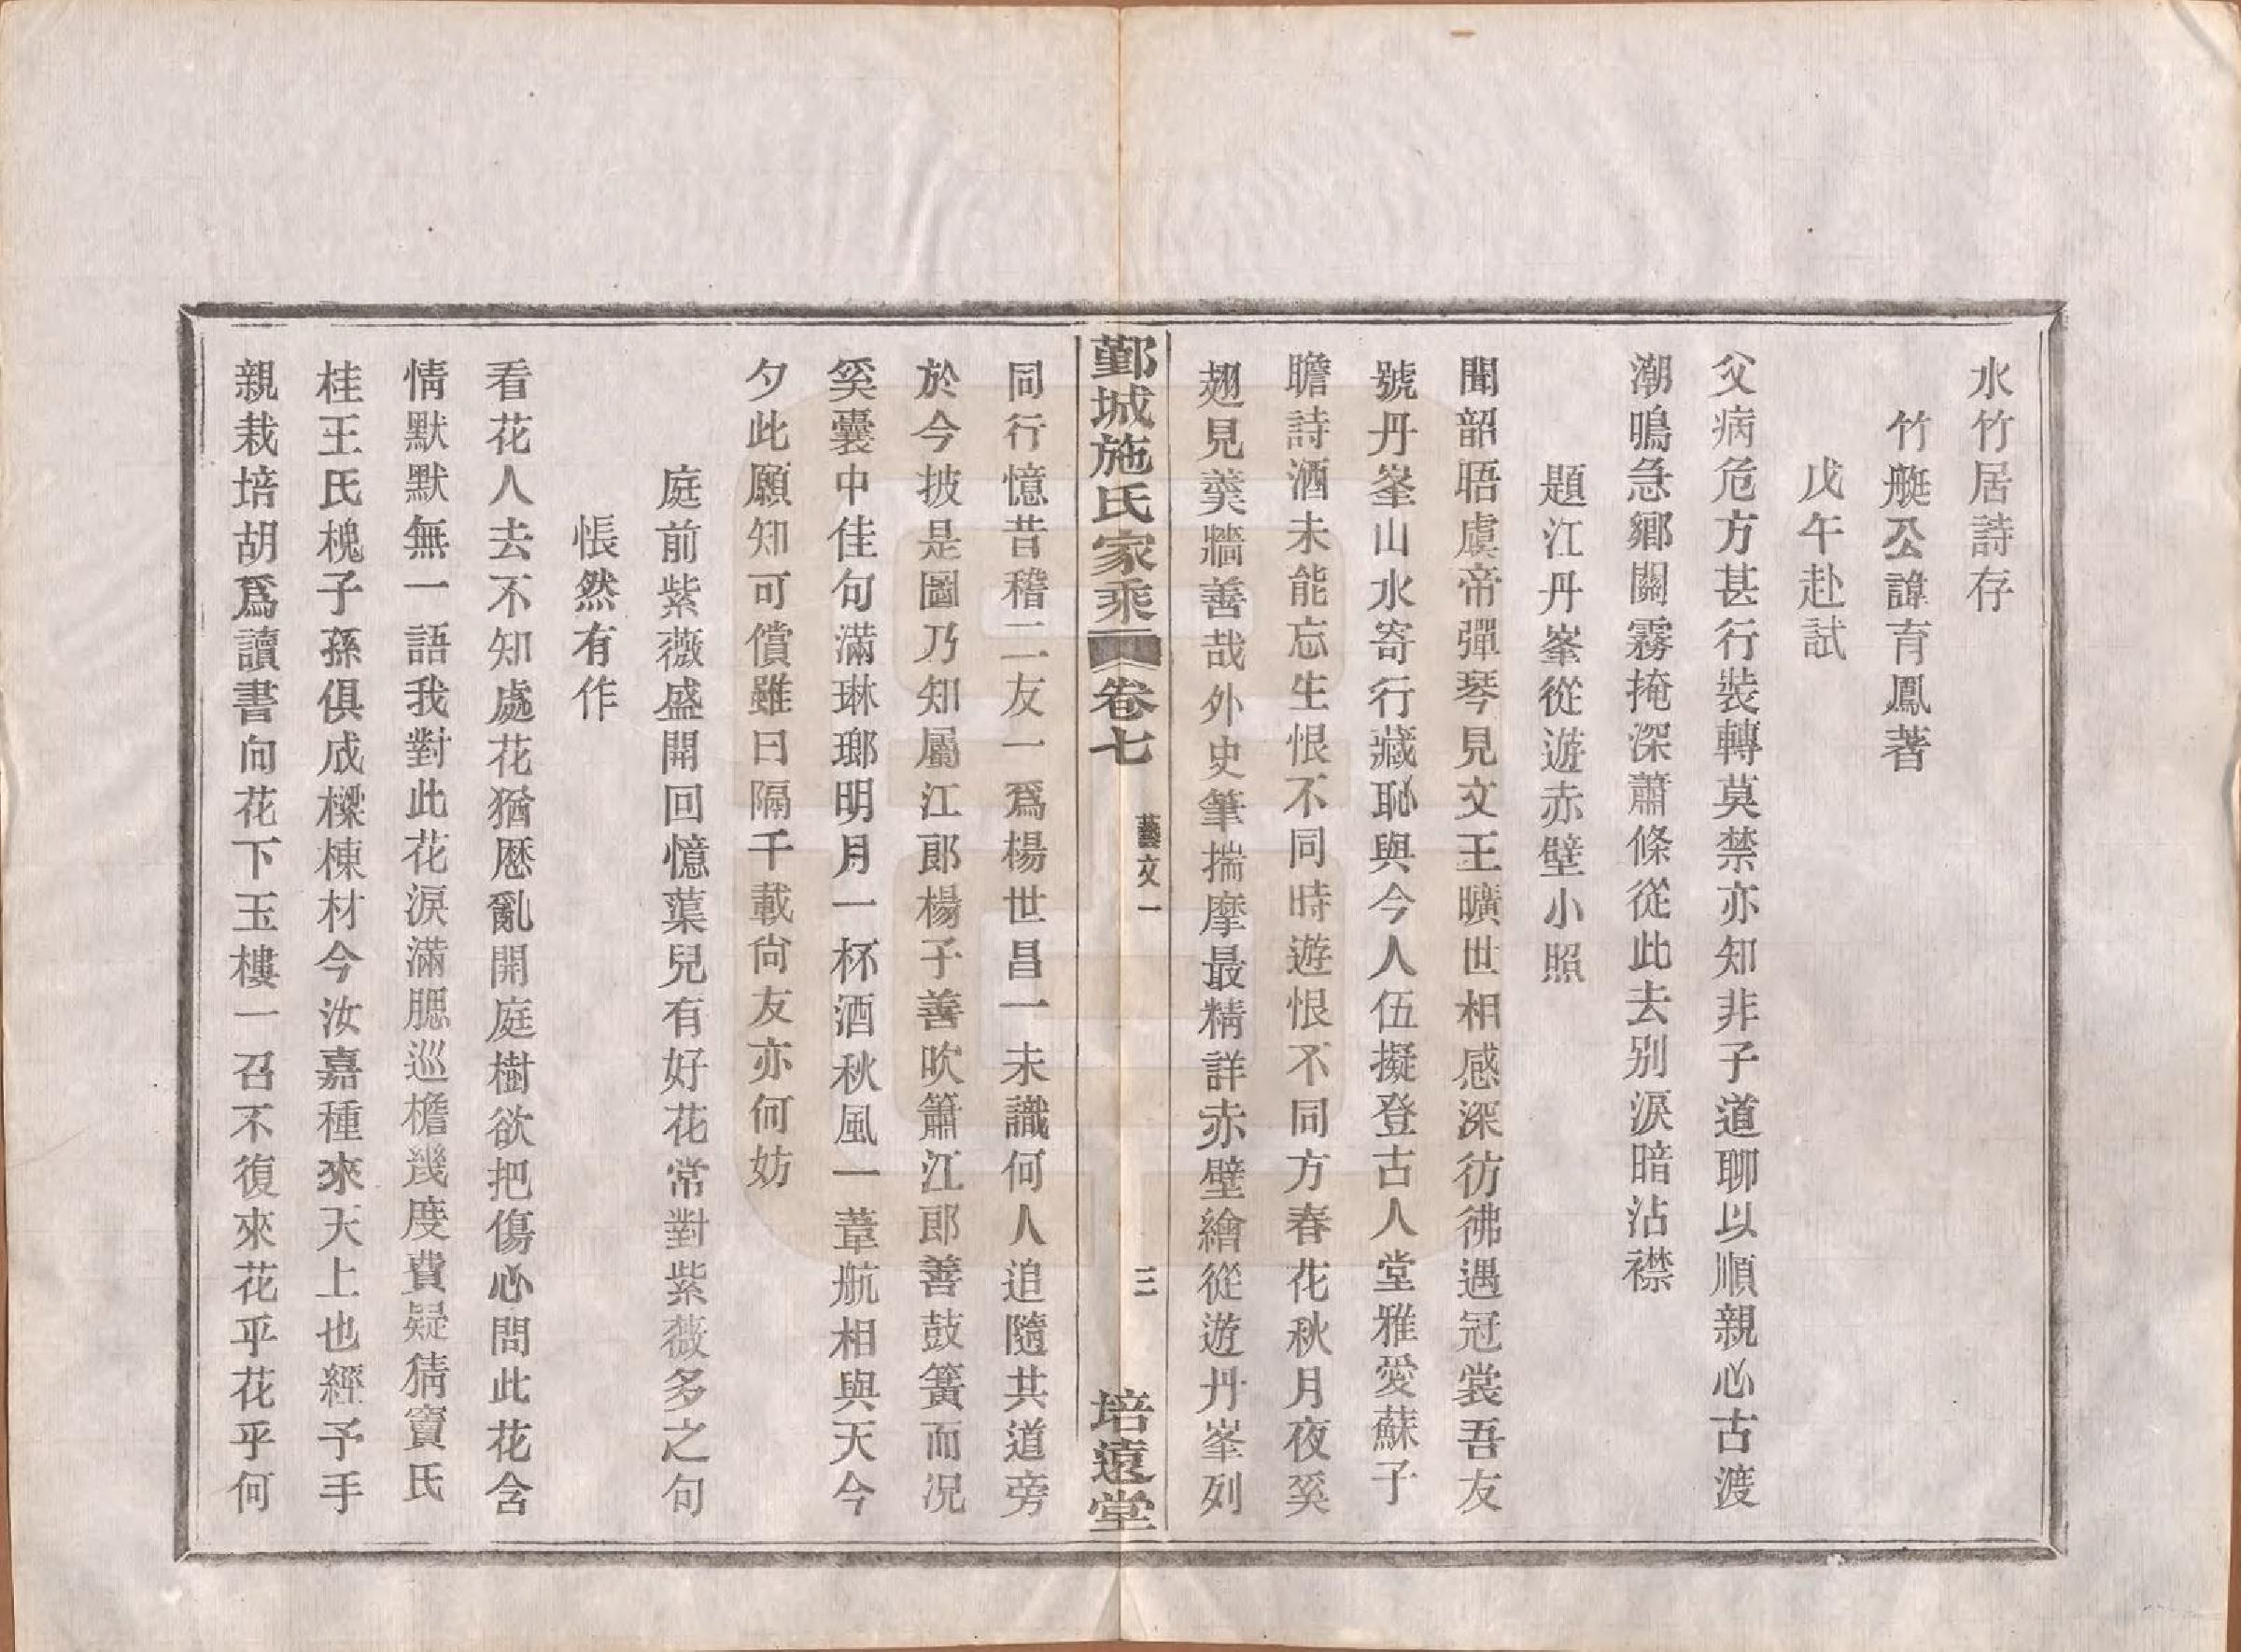 水竹居詩存
竹艇公諱育鳳著
戊午赴試
父病危方甚行裝轉莫禁亦知非子道聊以順親心古渡
潮鳴急鄉關霧掩深蕭條從此去別淚暗沾襟
題江丹峯從遊赤壁小照
聞韶晤虞帝彈琴見文王曠世相感深彷彿遇冠裳吾友
號丹峯山水寄行藏恥與今人伍擬登古人堂雅愛蘇子
瞻詩酒未能忘生恨不同時遊恨不同方春花秋月夜奚
翅見羹牆善哉外史筆揣摩最精詳赤壁繪從遊丹峯列
鄞城施氏家乘
卷七
藝文一
三
培遠堂
同行憶昔稽二友一爲楊世昌一未識何人追隨共道旁
於今披是圖乃知屬江郎楊子善吹簫江郎善鼓簧而況
奚囊中佳句滿琳瑯明月一杯酒秋風一葦航相與天今
夕此願知可償雖曰隔千載尙友亦何妨
庭前紫薇盛開回憶葉兒有好花常對紫薇多之句
悵然有作
看花人去不知處花猶厯亂開庭樹欲把傷心問此花含
情默默無一語我對此花淚滿腮巡檐幾度費疑猜竇氏
桂王氏槐子孫俱成樑棟材今汝嘉種來天上也經予手
親栽培胡爲讀書向花下玉樓一召不復來花乎花乎何